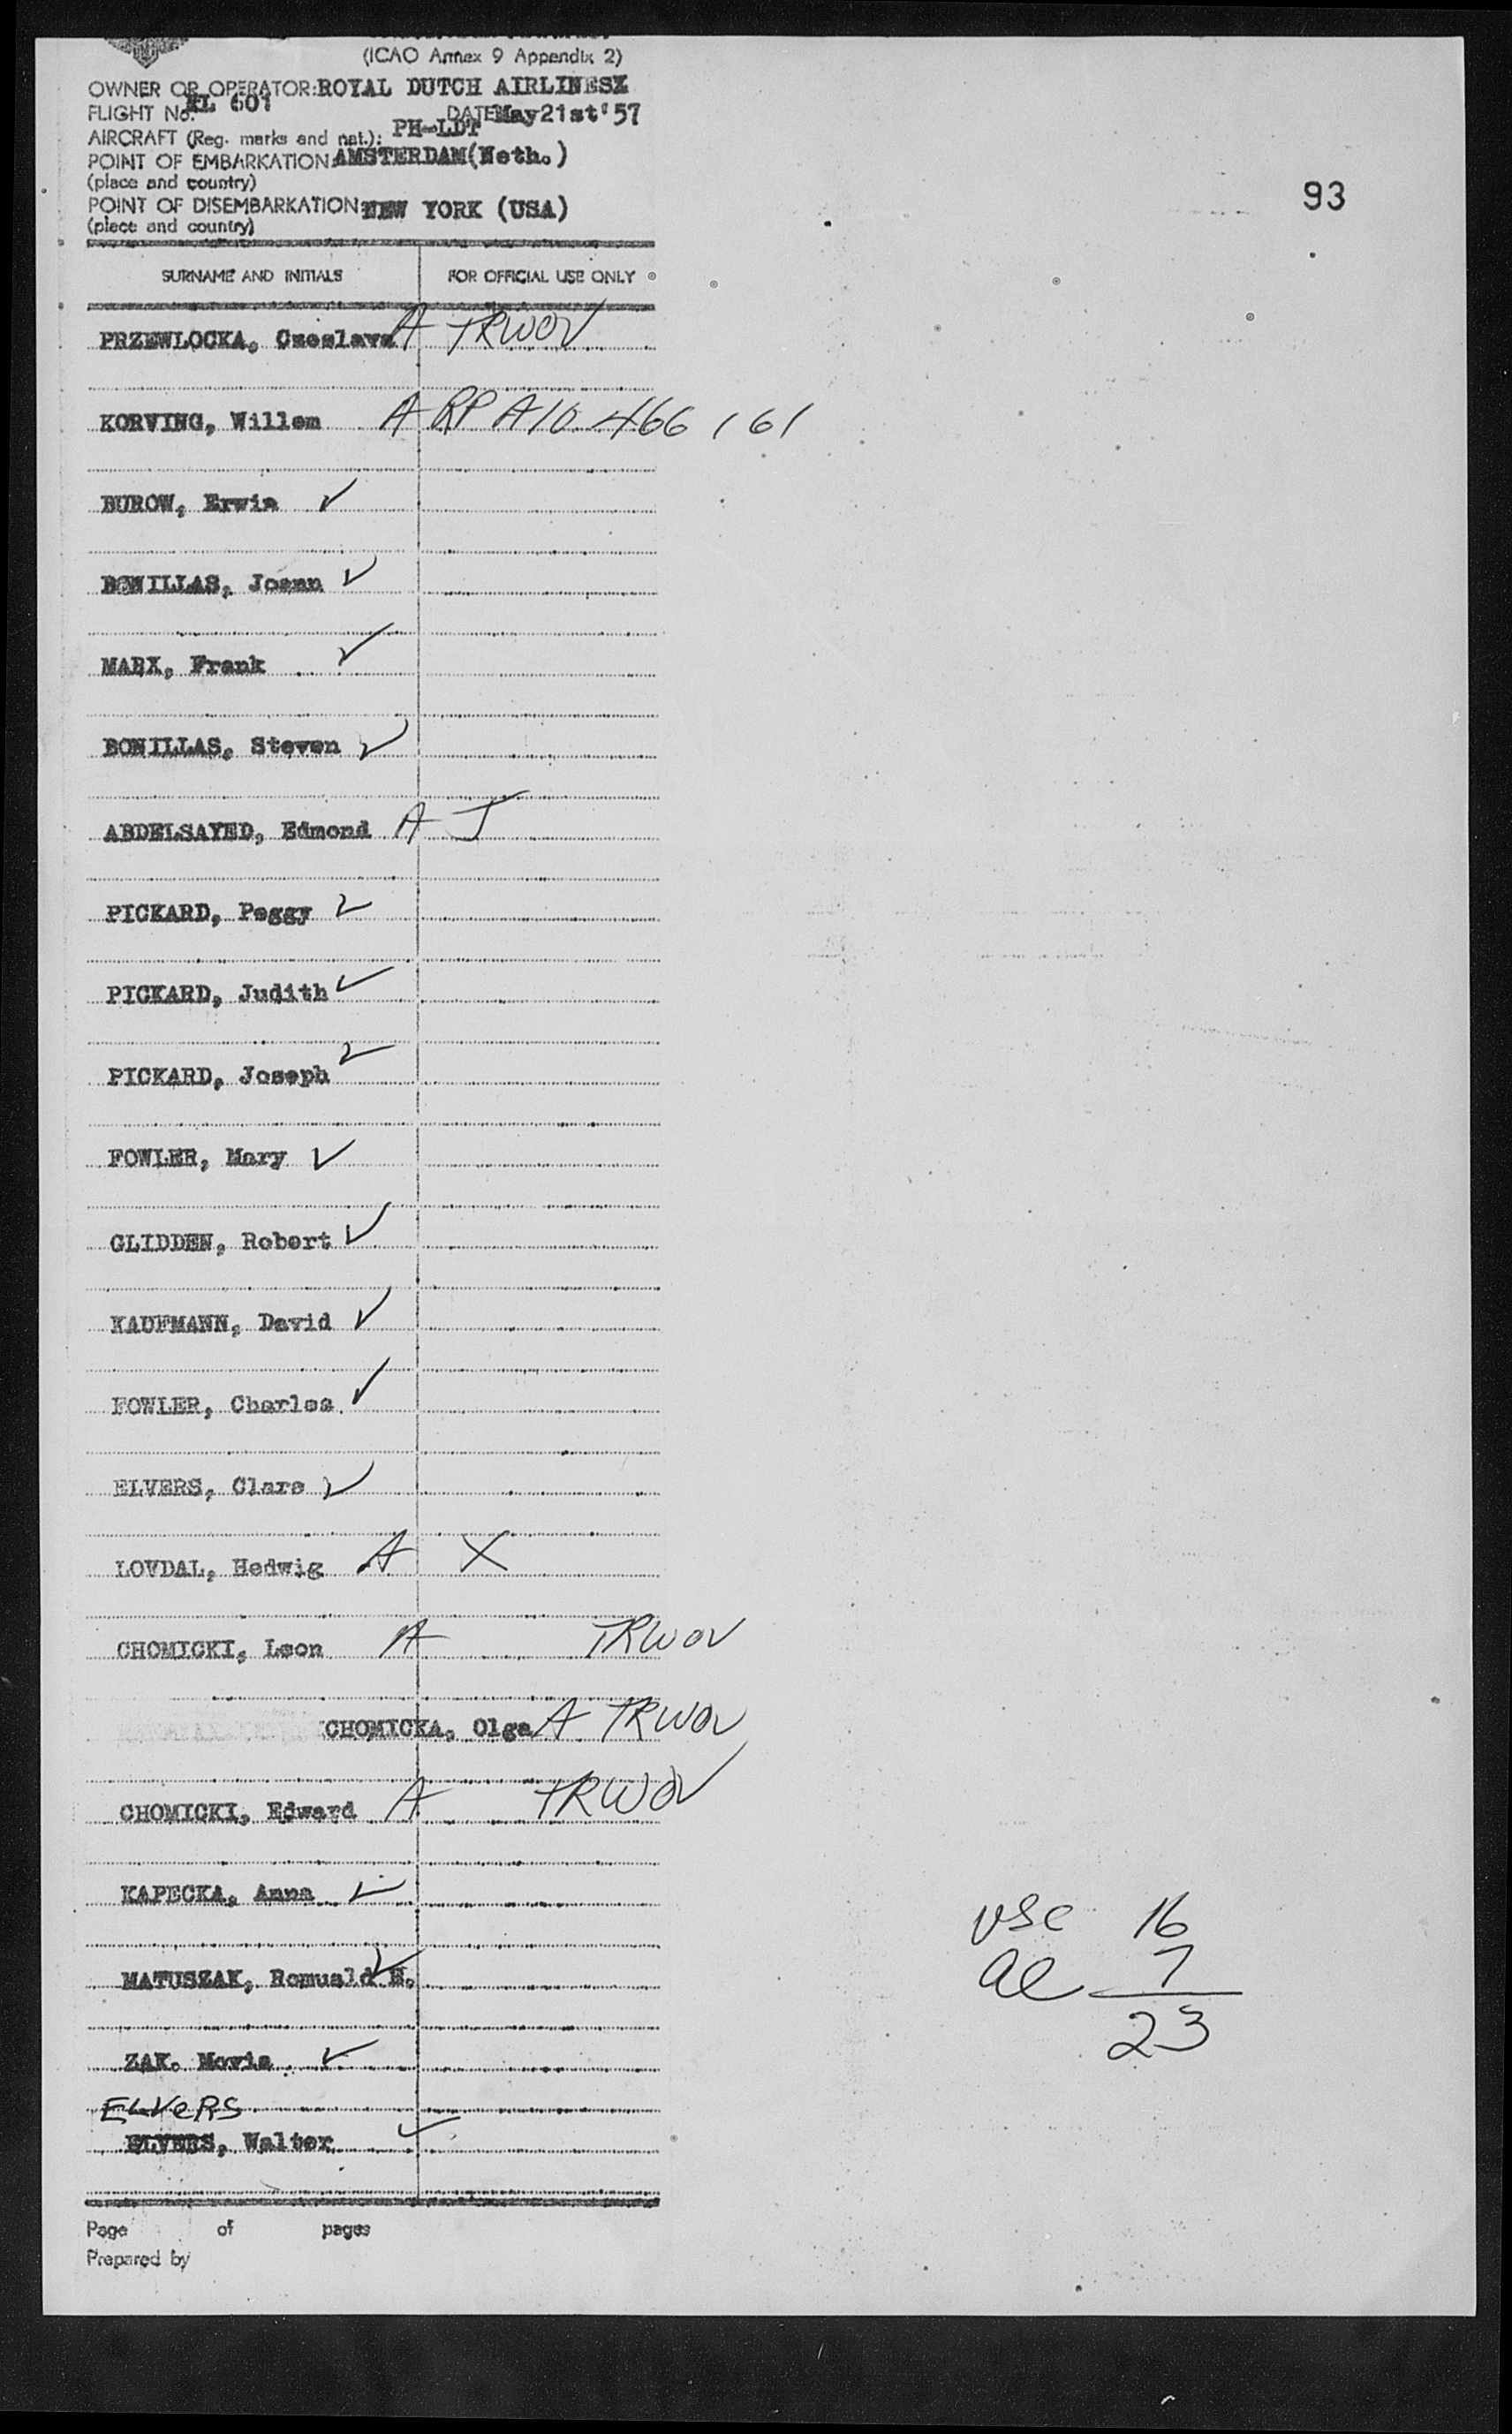 (ICAO Annex 9 Appendix 2)
OWNER OR OPERATOR: ROYAL DUTCH AIRLINES
FLIGHT No. KL 601 DATE May 21st '57
AIRCRAFT (Reg. marks and nat.): PH-LDT
POINT OF EMBARKATION: AMSTERDAM (Neth.)
(place and country)
POINT OF DISEMBARKATION: NEW YORK (USA)
(place and country)
93
SURNAME AND INITIALS FOR OFFICIAL USE ONLY
PRZEWLOCKA, Czeslawa A TRWOV
KORVING, Willem A RP A10 466 161
BUROW, Erwin ✓
BONILLAS, Joann ✓
MARX, Frank ✓
BONILLAS, Steven ✓
ABDELSAYED, Edmond A J
PICKARD, Peggy ✓
PICKARD, Judith ✓
PICKARD, Joseph ✓
FOWLER, Mary ✓
GLIDDEN, Robert ✓
KAUFMANN, David ✓
FOWLER, Charles ✓
ELVERS, Clara ✓
LOVDAL, Hedwig A X
CHOMICKI, Leon A TRWOV
CHOMICKA, Olga A TRWOV
CHOMICKI, Edward A TRWOV
KAPECKA, Anna ✓
MATUSZAK, Romuald E. ✓
ZAK. Movia ✓
ELVERS
ELVERS, Walter ✓
USC 16
al 7
23
Page of pages
Prepared by